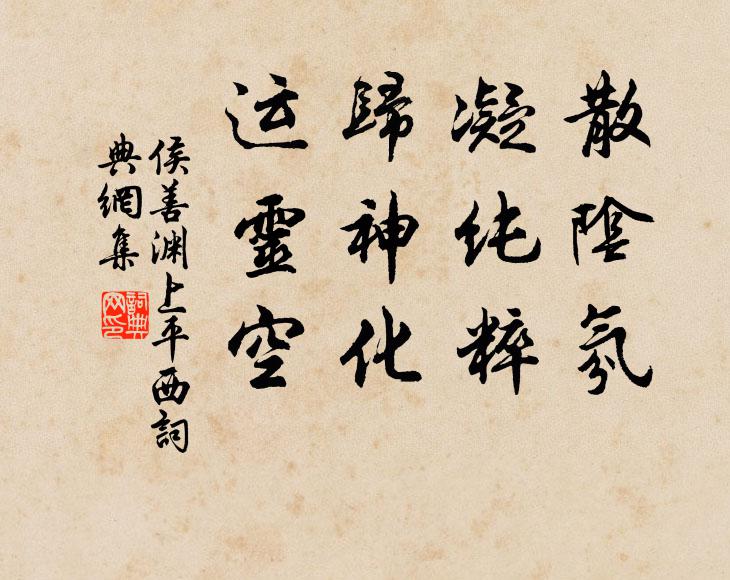 散陰氛
凝纯粹
歸神化
运靈空
侯善渊上平西詞
典網集
詞典网印